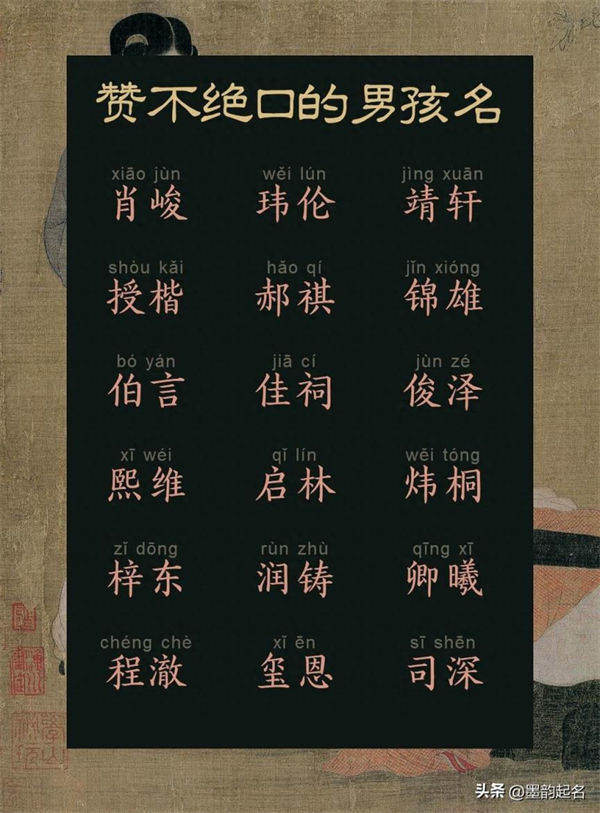 赞不绝口的男孩名
xiāo jùn wěi lún jìng xuān
肖峻 玮伦 靖轩
shòu kǎi hǎo qí jǐn xióng
授楷 郝祺 锦雄
bó yán jiā cí jùn zé
伯言 佳祠 俊泽
xī wéi qǐ lín wěi tóng
熙维 启林 炜桐
zǐ dōng rùn zhù qīng xī
梓东 润铸 卿曦
chéng chè xǐ ēn sī shēn
程澈 玺恩 司深
头条 @墨韵起名